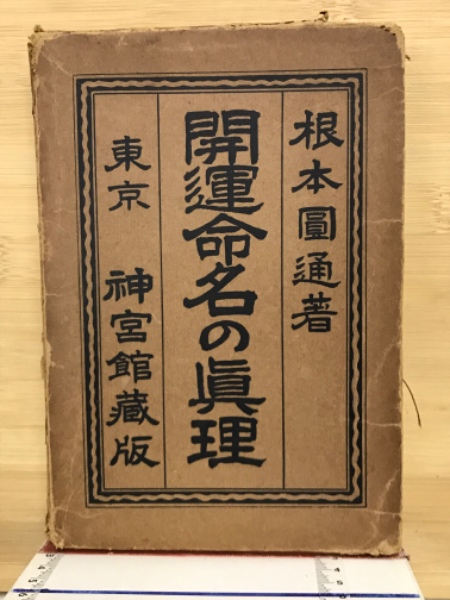 根本圓通著
開運命名の眞理
東京 神宮館藏版